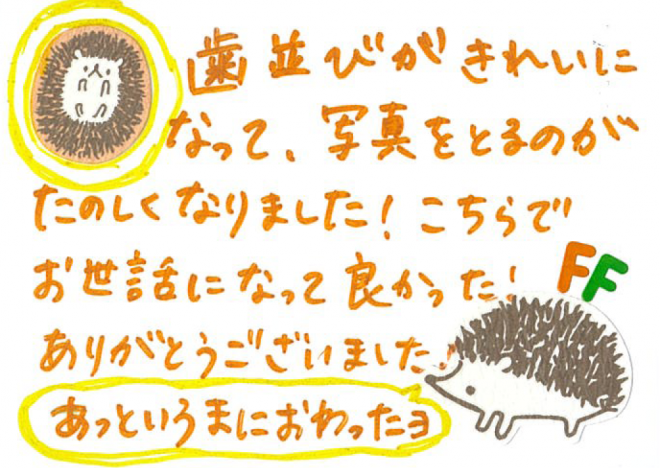 歯並びがきれいに
なって、写真をとるのが
たのしくなりました!こちらで
お世話になって良かった!
FF
ありがとうございました♪
あっというまにおわったヨ